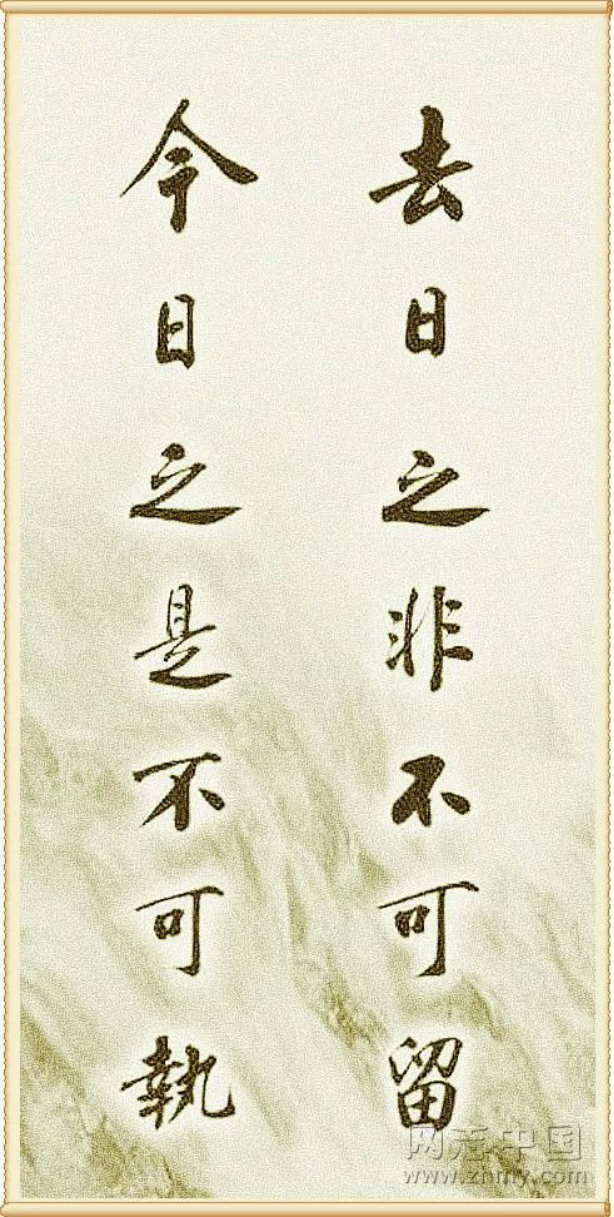 去日之非不可留
今日之是不可執
网活中国
www.zhmy.com